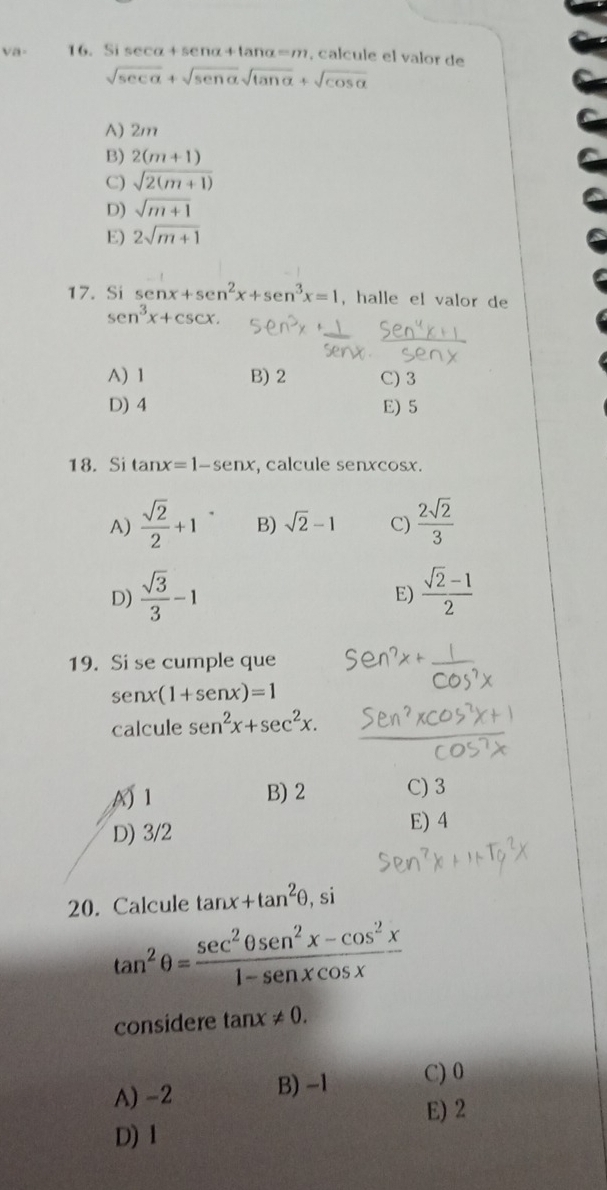 va-
16. Si secα + senα + tanα = m, calcule el valor de
√secα + √senα √tanα + √cosα
A) 2m
B) 2(m + 1)
C) √2(m + 1)
D) √m + 1
E) 2√m + 1
17. Si senx + sen²x + sen³x = 1, halle el valor de
sen³x + cscx.
sen³x + 1/senx. (sen⁴x + 1)/senx
A) 1 B) 2 C) 3
D) 4 E) 5
18. Si tanx = 1 – senx, calcule senxcosx.
A) √2/2 + 1 B) √2 – 1 C) 2√2/3
D) √3/3 – 1 E) (√2 – 1)/2
19. Si se cumple que
senx(1 + senx) = 1
calcule sen²x + sec²x.
sen²x + 1/cos²x
(sen²xcos²x + 1)/cos²x
A) 1 B) 2 C) 3
D) 3/2 E) 4
sen²x + 1 + Tg²x
20. Calcule tanx + tan²θ, si
tan²θ = (sec²θ sen²x – cos²x)/(1 – senx cosx)
considere tanx ≠ 0.
A) –2 B) –1 C) 0
D) 1 E) 2